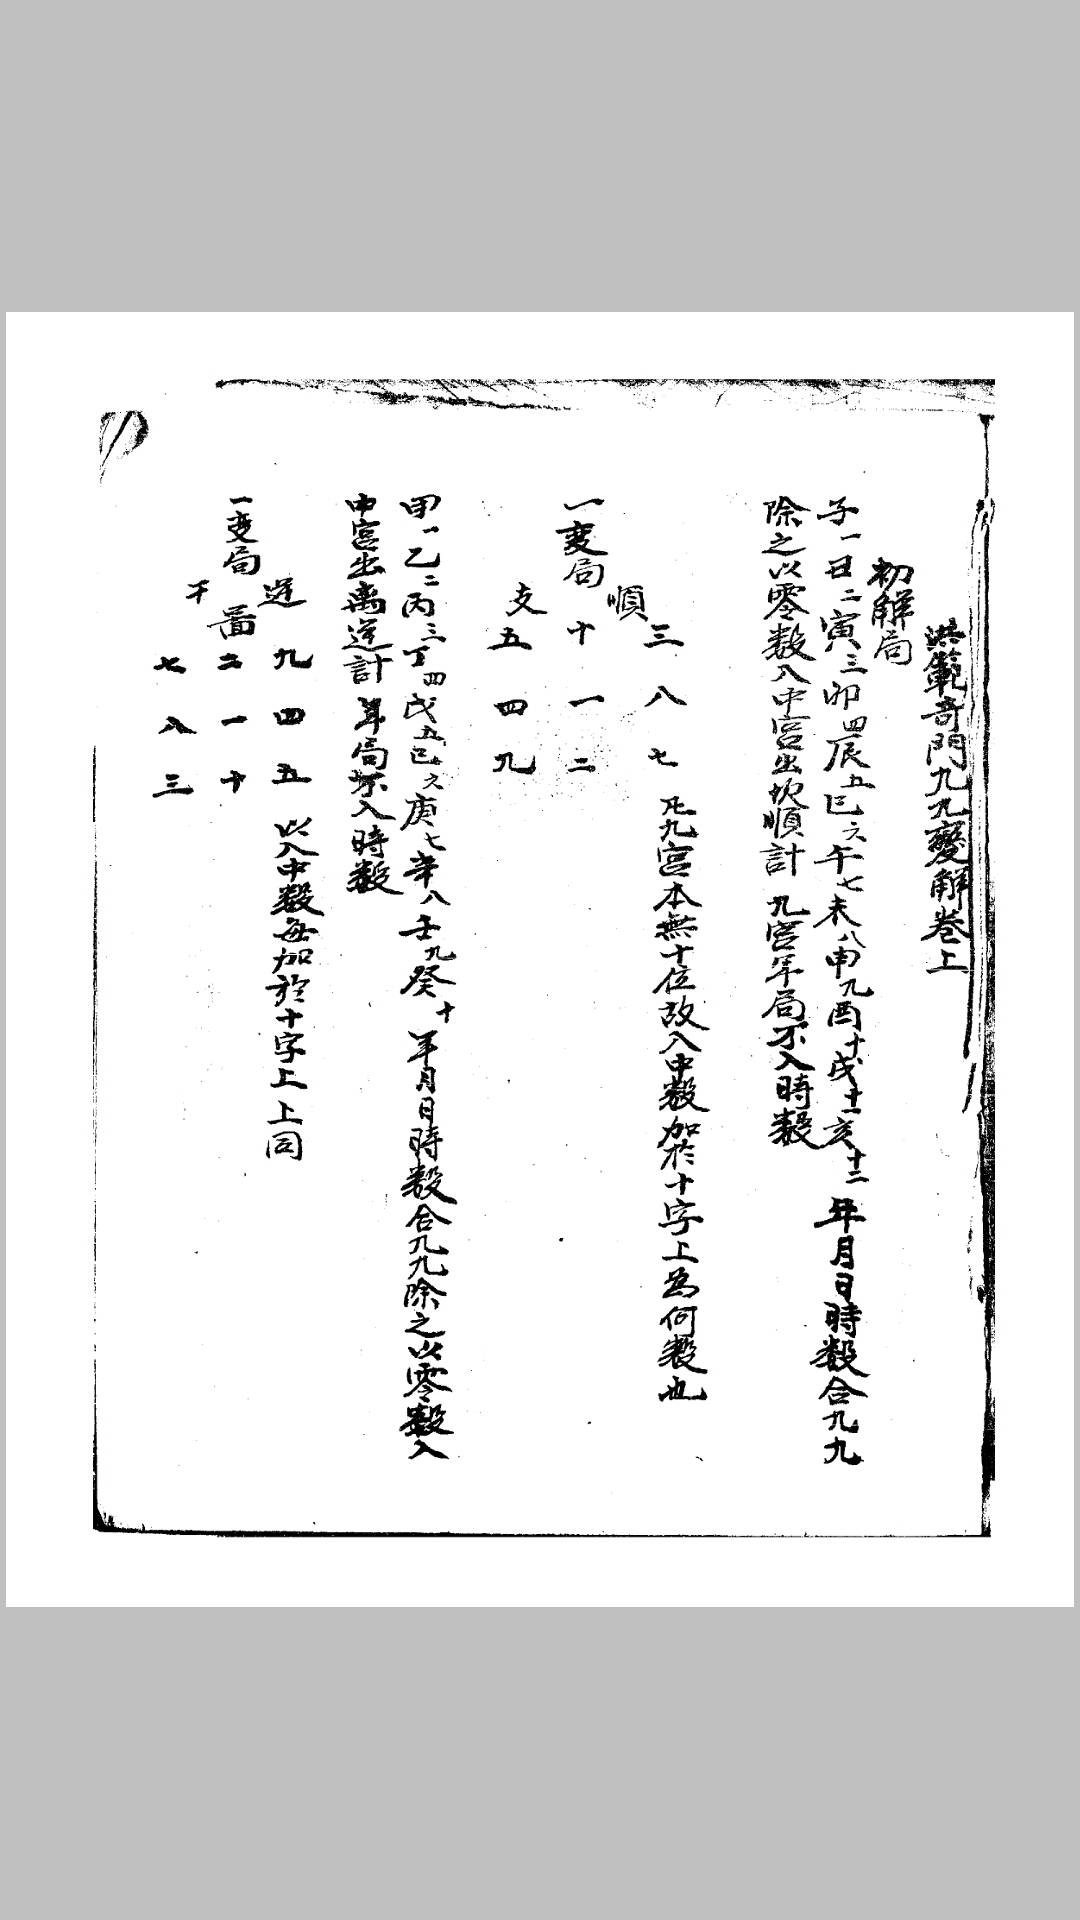 洪範奇門九九變解卷上
初解局
子一丑二寅三卯四辰五巳六午七未八申九酉十戌十一亥十二 年月日時數合九九
除之以零數入中宮出坎順計 九宮年局不入時數
順 三 八 七 凡九宮本無十位故入中數加於十字上為何數也
一変局 十 一 二
支 五 四 九
甲一乙二丙三丁四戊五己六庚七辛八壬九癸十 年月日時數合九九除之以零數入
中宮出离逆計 年局不入時數
逆 九 四 五 以入中數每加於十字上 上同
一変局 圖 二 一 十
干 七 八 三